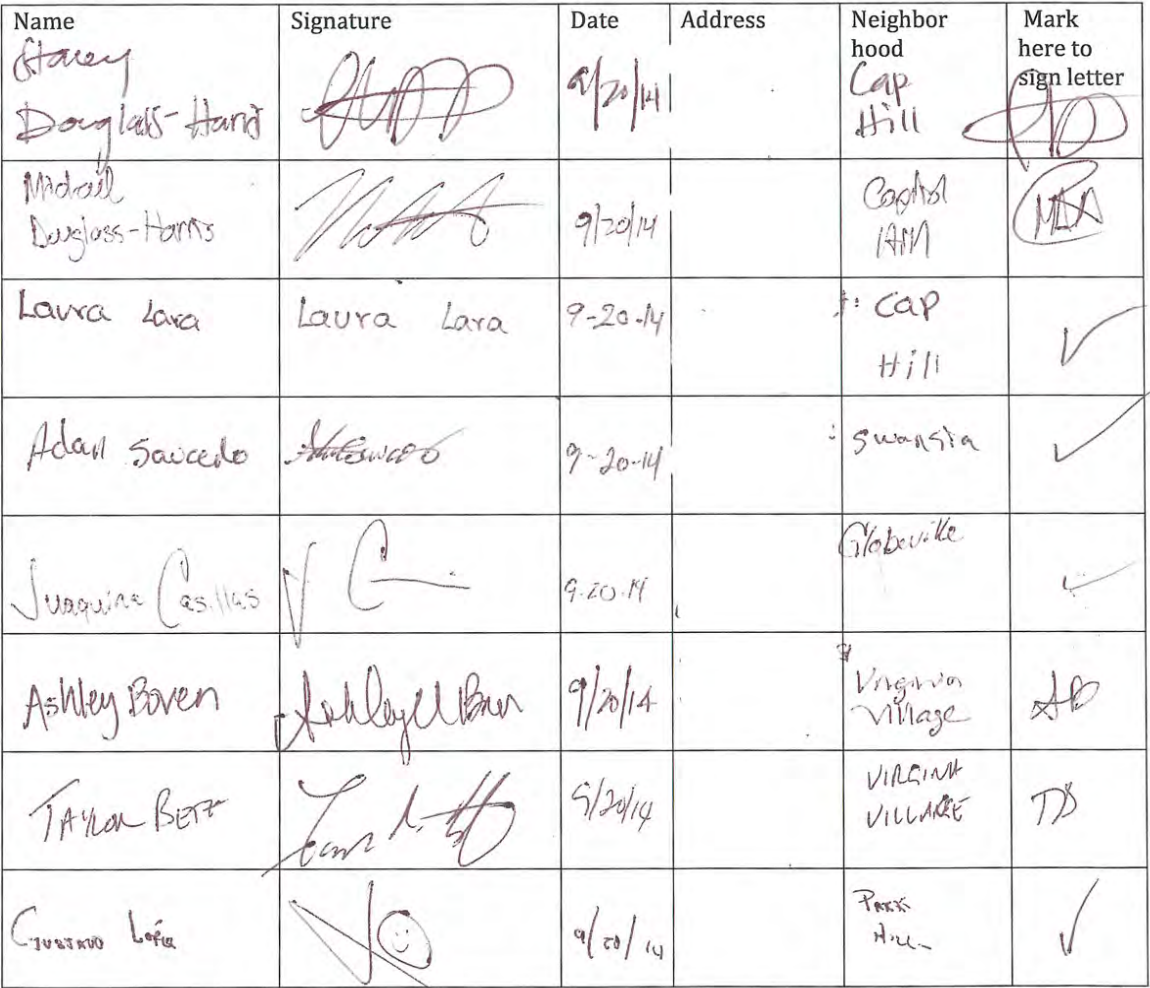 Name Signature Date Address Neighbor Mark
hood here to
sign letter
Stacey
Douglass-Harris 9/20/14 Cap
Hill
Douglass-Harris 9/20/14 Capitol
Hill
Laura Lara Laura Lara 9-20-14 Cap
Hill ✓
Adan Saucedo 9-20-14 Swansia ✓
Juaquina Casillas J C 9-20-14 Globeville ✓
Ashley Boven 9/20/14 Virginia
Village AB
TAYLOR BETZ 9/20/14 VIRGINIA
VILLAGE TB
GUSTAVO 9/20/14 PARK
HILL ✓